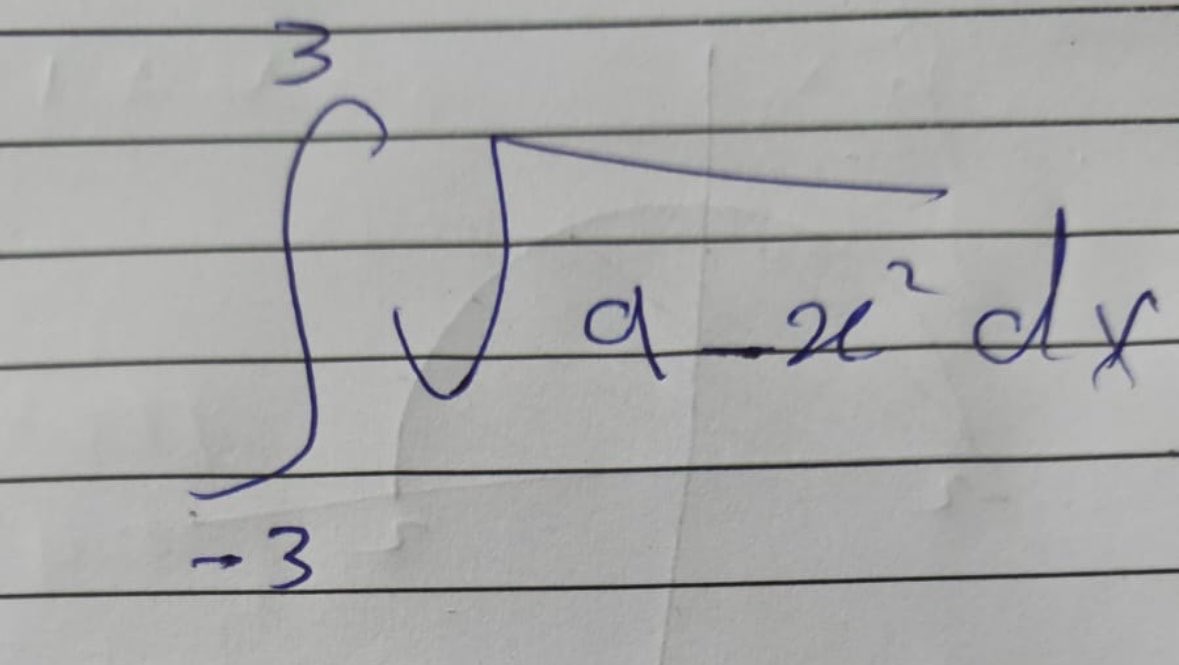 ∫_{-3}^{3} √(9 - x²) dx